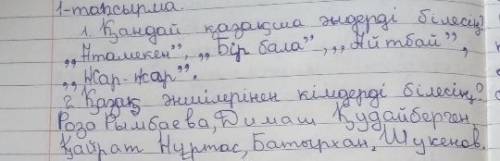 1-тапсырма
1. Қандай қазақша әндерді білесің?
„Атамекен", „Бір бала", „Айтбай",
„Жар-жар".
2. Қазақ әншілерінен кімдерді білесің?
Роза Рымбаева, Димаш Қудайберген
Қайрат Нұртас, Батырхан, Шукенов.